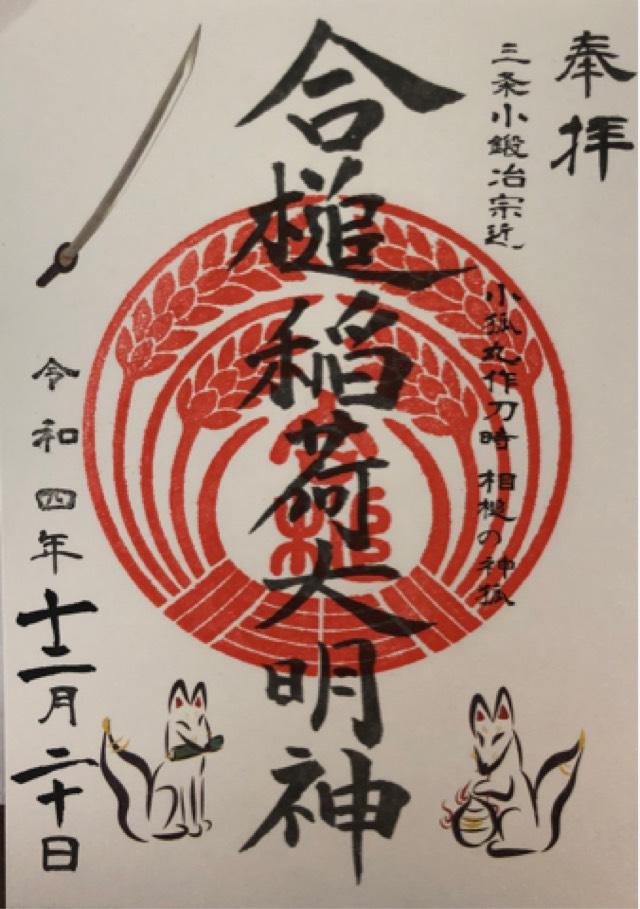 奉拝
三条小鍛冶宗近
小狐丸作刀時 相槌の神狐
合槌稲荷大明神
合槌
令和四年十二月二十日